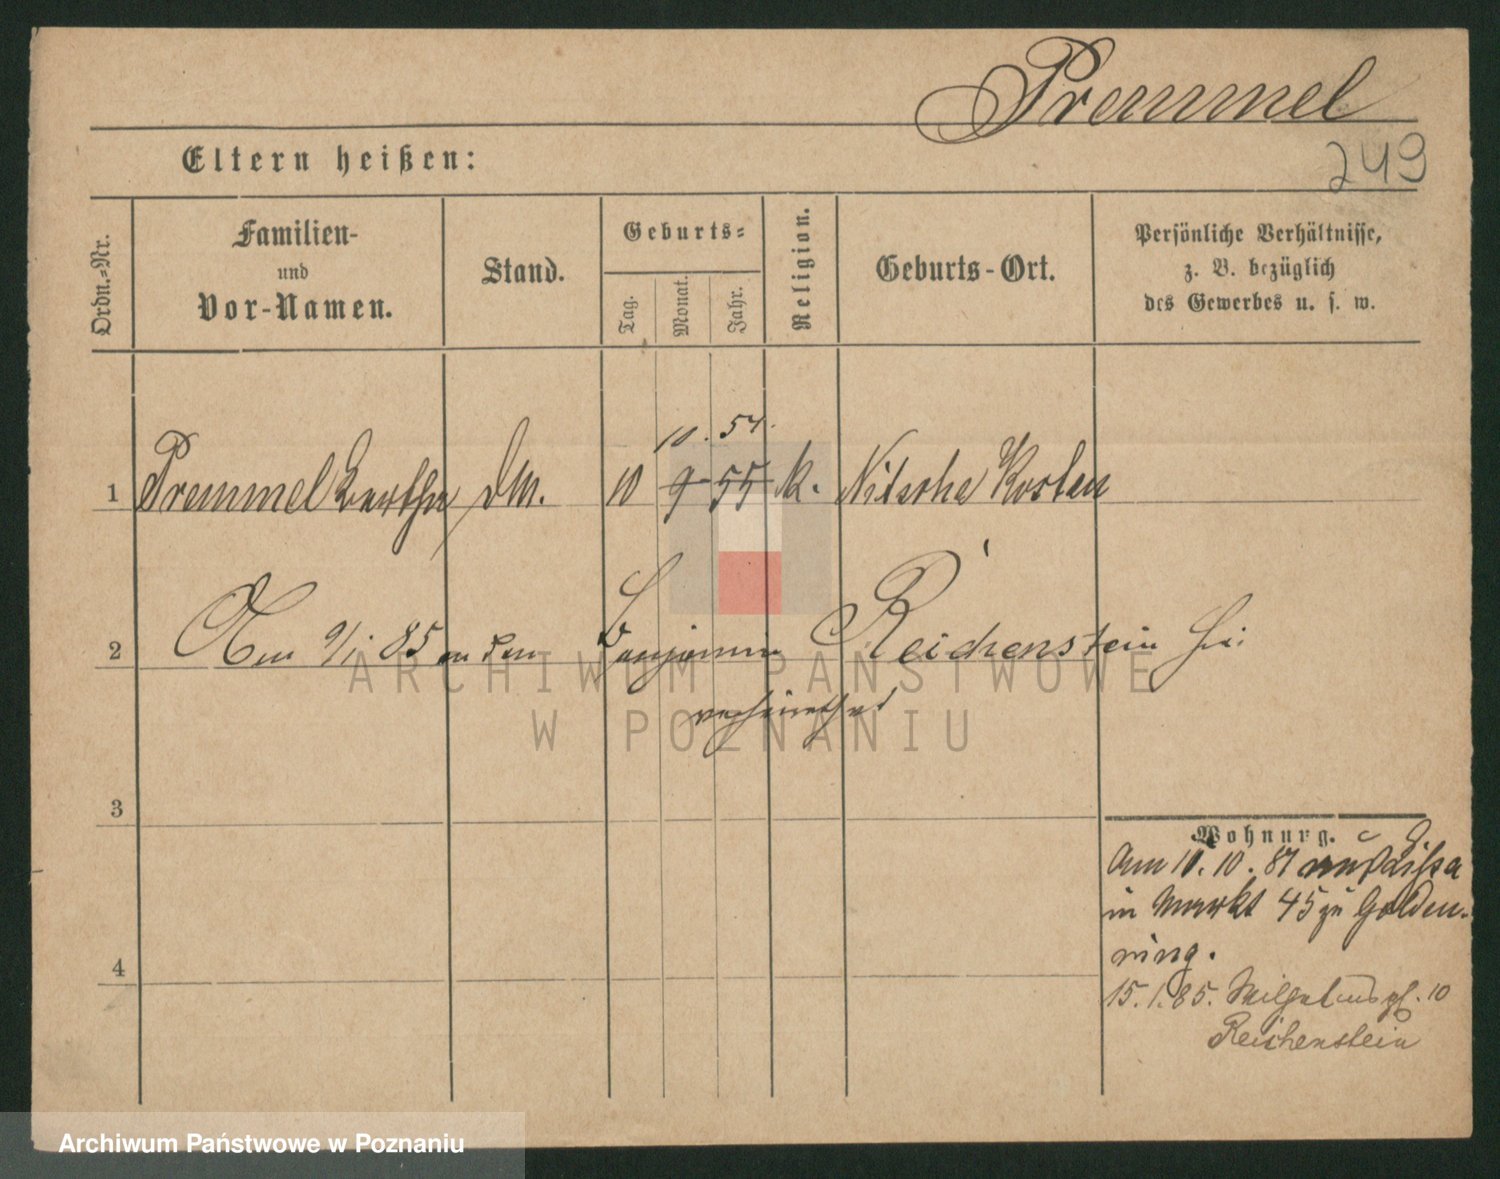 Premmel
249
Eltern heißen:
Ordn.=Nr.
Familien-
und
Vor-Namen.
Stand.
Geburts=
Tag.
Monat.
Jahr.
Religion.
Geburts-Ort.
Persönliche Verhältnisse,
z. B. bezüglich
des Gewerbes u. s. w.
10. 54.
1 Premmel Bertha DM. 10 9 55 k. Nitsche Kosten
2 Am 9/1. 85 an den Benjamin Reichenstein hi.
verheirathet
ARCHIWUM PAŃSTWOWE
W POZNANIU
3
Wohnung.
Am 10. 10. 81 aus Lissa
in Markt 45 zu Golden-
ring.
4
15. 1. 85. Wilhelmspl. 10
Reichenstein
Archiwum Państwowe w Poznaniu